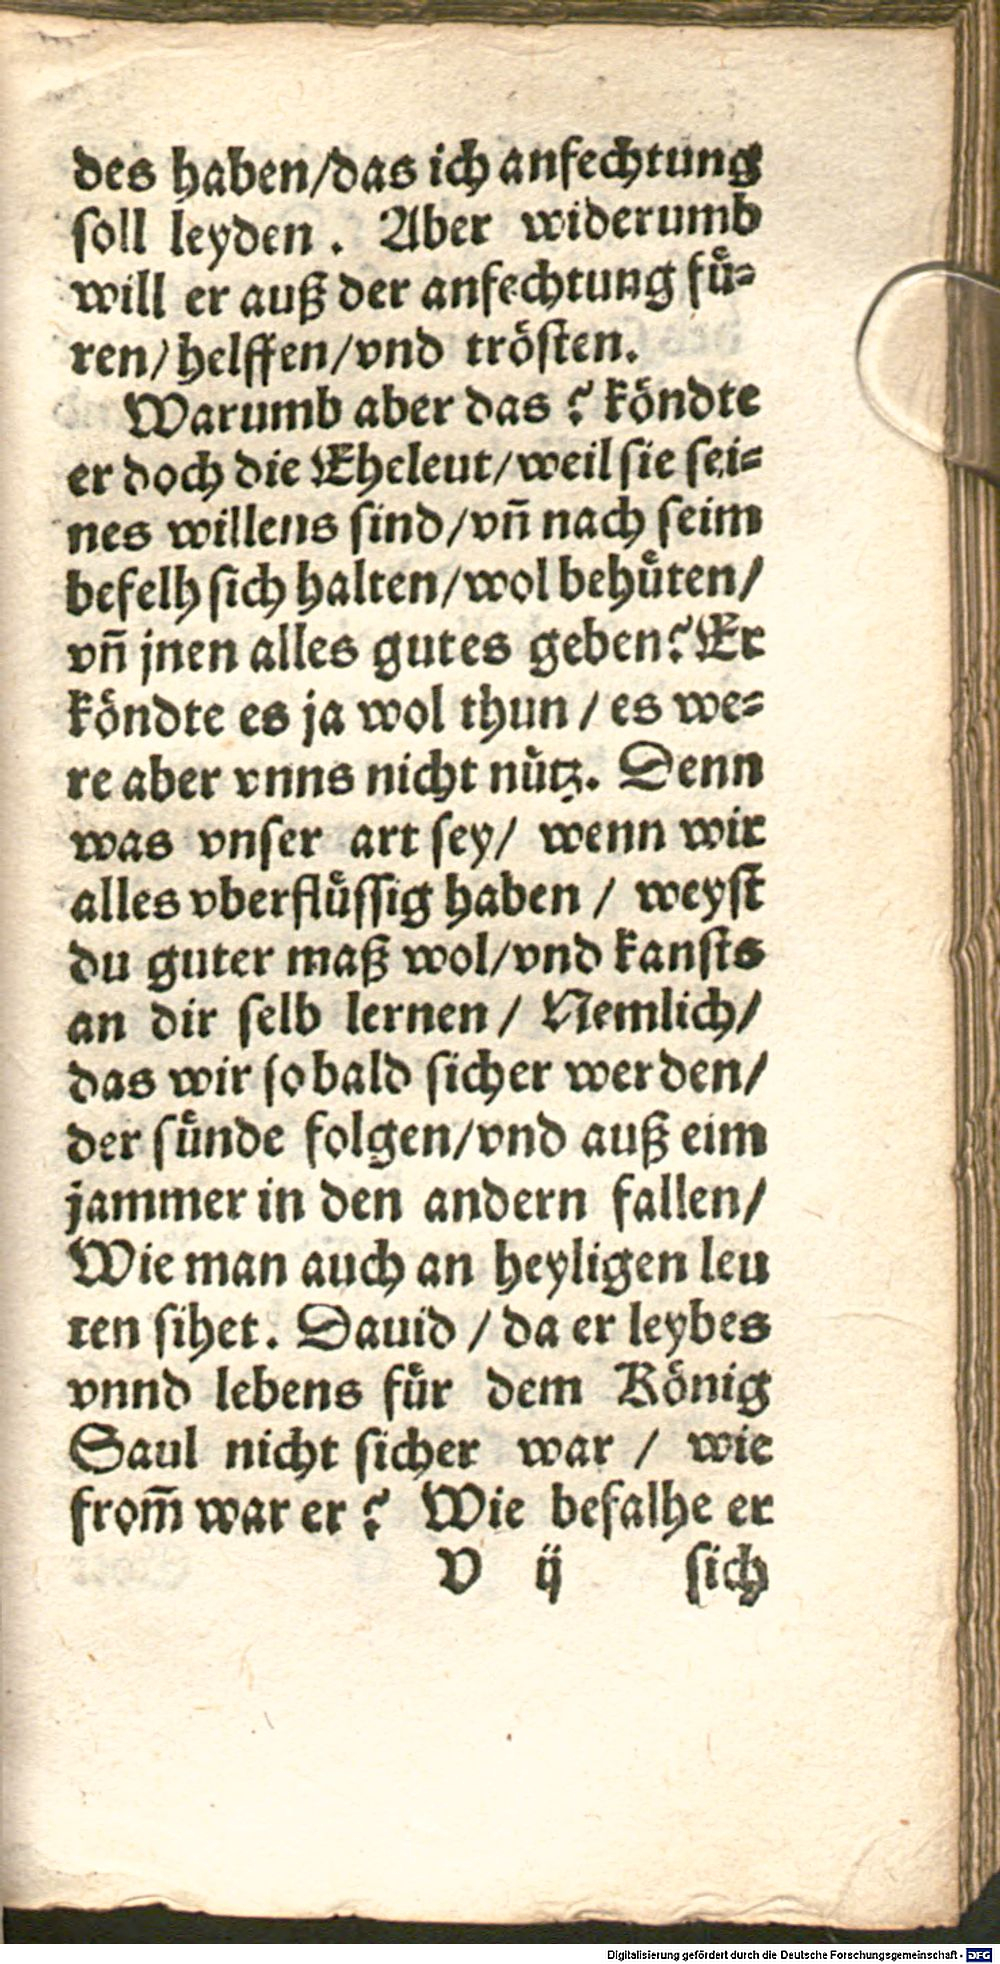 des haben/das ich anfechtung
soll leyden. Aber widerumb
will er auß der anfechtung fuͤ-
ren/helffen/vnd troͤsten.
Warumb aber das? koͤndte
er doch die Eheleut/weil sie sei-
nes willens sind/vn̄ nach seim
befelh sich halten/wol behuͤten/
vn̄ jnen alles gutes geben? Er
koͤndte es ja wol thun/es we-
re aber vnns nicht nuͤtz. Denn
was vnser art sey/ wenn wir
alles vberfluͤssig haben/ weyst
du guter maß wol/vnd kansts
an dir selb lernen/ Nemlich/
das wir so bald sicher werden/
der suͤnde folgen/vnd auß eim
jammer in den andern fallen/
Wie man auch an heyligen leu
ten sihet. Dauid/da er leybes
vnnd lebens fuͤr dem Koͤnig
Saul nicht sicher war/ wie
from̄ war er? Wie befalhe er
V ij sich
Digitalisierung gefördert durch die Deutsche Forschungsgemeinschaft - DFG